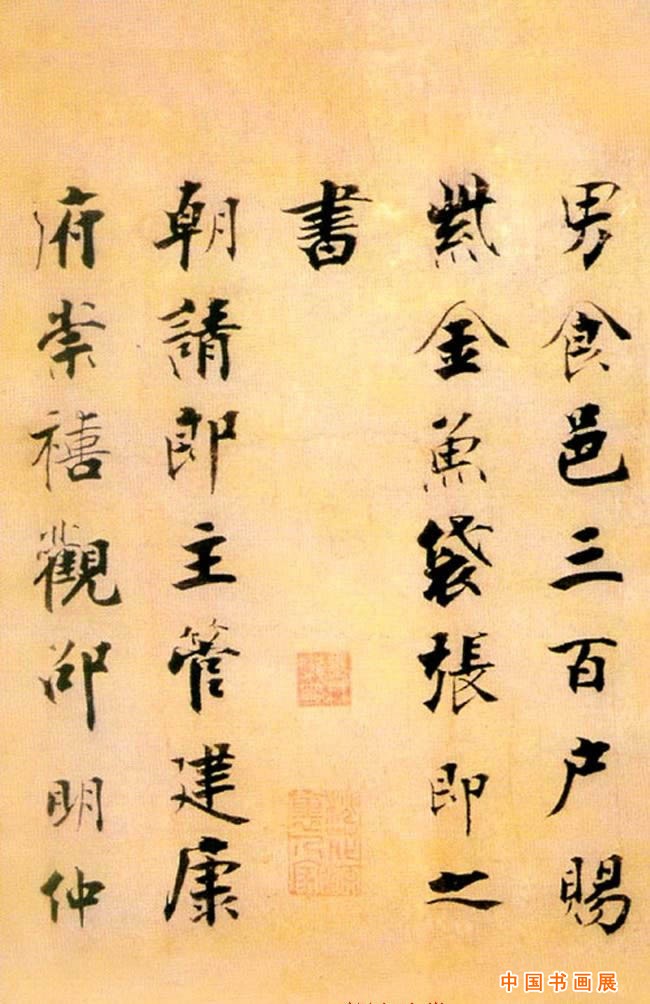 男食邑三百户賜
紫金魚袋張即之
書
朝請郎主管建康
府崇禧觀邵明仲
中国书画展